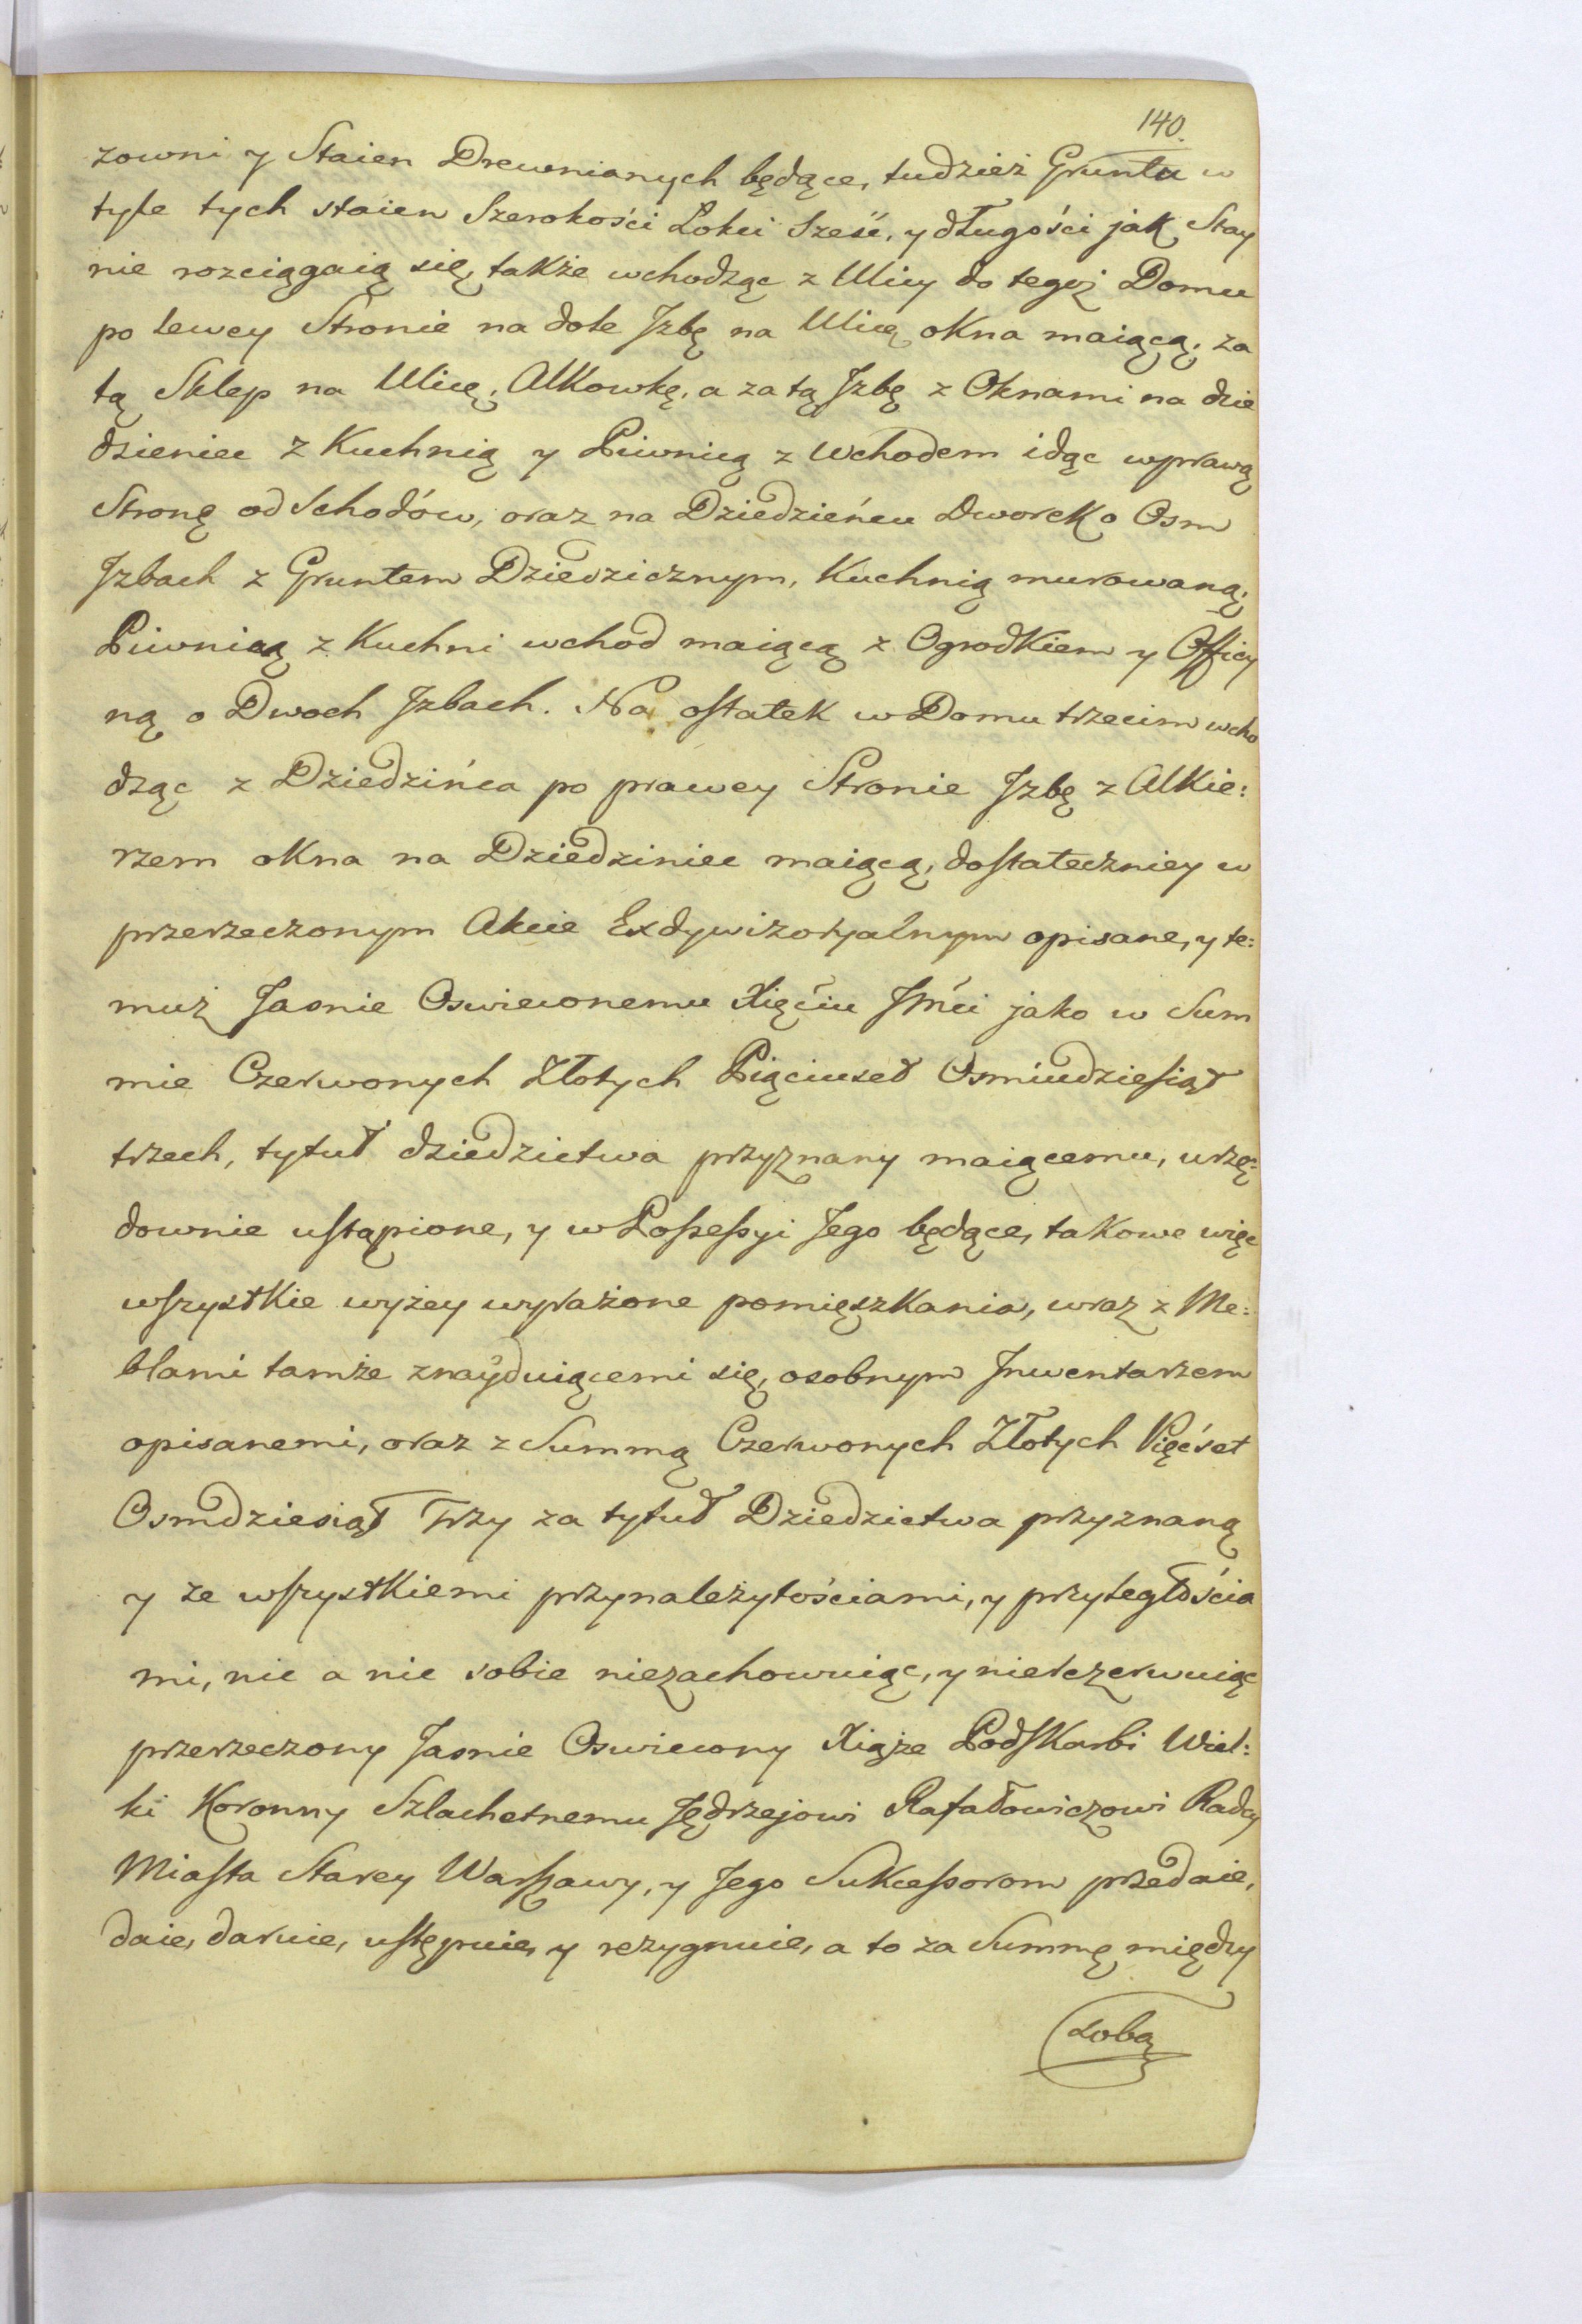 140.
zowni y Staien Drewnianych będące, tudzież Gruntu w
tyle tych staien Szerokości Łokci Sześć, y długości jak Stay
nie rozciągaią się, także wchodząc z Ulicy do tegoż Domu
po lewey Stronie na dole Jzbę na Ulicę okna maiącą, za
tą Sklep na Ulicę, Alkowkę, a za tą Jzbę z Oknami na dzie
dzieniec z Kuchnią y Piwnicą z Wchodem idąc w prawą
Stronę od Schodów, oraz na Dziedzieńcu Dworek o Osm
Jzbach z Gruntem Dziedzicznym, Kuchnią murowaną,
Piwnicą z Kuchni wchod maiącą z Ogrodkiem y Officy
ną o Dwoch Jzbach. Na ostatek w Domu trzecim wcho
dząc z Dziedzińca po prawey Stronie Jzbę z Alkie:
rzem okna na Dziedziniec maiącą, dostateczniey w
przerzeczonym Akcie Exdywizoryalnym opisane, y te:
muż Jasnie Oswieconemu Xięciu Jmći jako w Sum
mie Czerwonych Złotych Pięciuset Osmiudziesiąt
trzech, tytuł dziedzictwa przyznany maiącemu, urzę:
downie ustąpione, y w Possessyi Jego będące, takowe więc
wszystkie wyżey wyrażone pomięszkania, wraz z Me:
blami tamże znayduiącemi się, osobnym Jnwentarzem
opisanemi, oraz z Summą Czerwonych Złotych Pięćset
Osmdziesiąt Trzy za tytuł Dziedzictwa przyznaną
y ze wszystkiemi przynależytościami, y przyległościa
mi, nic a nic sobie niezachowuiąc, y nierezerwuiąc
przerzeczony Jasnie Oswiecony Xiąże Podskarbi Wiel:
ki Koronny Szlachetnemu Jędrzejowi Rafałowiczowi Radcy
Miasta Starey Warszawy, y Jego Sukcessorom przedaie,
daie, daruie, ustępuie, y rezygnuie, a to za Summę między
sobą